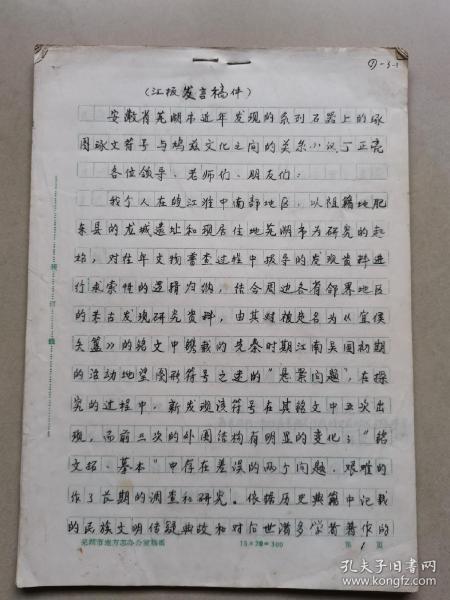 (7)-5-1
(汇报发言稿件)
安徽省芜湖市近年发现的系列石器上的
图 文符号与鸠兹文化之间的关系小议 丁正亮
各位领导、老师们、朋友们:
我个人在皖江淮中南部地区,以祖籍地肥
东县的龙城遗址和现居住地芜湖市为研究的起
始,对往年文物普查过程中报导的发现资料进
行求索性的逻辑归纳,结合周边各省邻界地区
的考古发现研究资料,由其对被定名为《宜侯
夨簋》的铭文中镌载的先秦时期江南吴国初期
的活动地望图形符号之迷的“悬案问题”,在探
究的过程中,新发现该符号在其铭文中五次出
现,而前三次的外围结构有明显的变化;“铭
文拓、摹本”中存在差误的两个问题,艰难的
作了长期的调查和研究。依据历史典籍中记载
的民族文明传疑典故和对后世诸多学者著作的
芜湖市地方志办公室稿纸
15×20=300
第 1 页
孔夫子旧书网